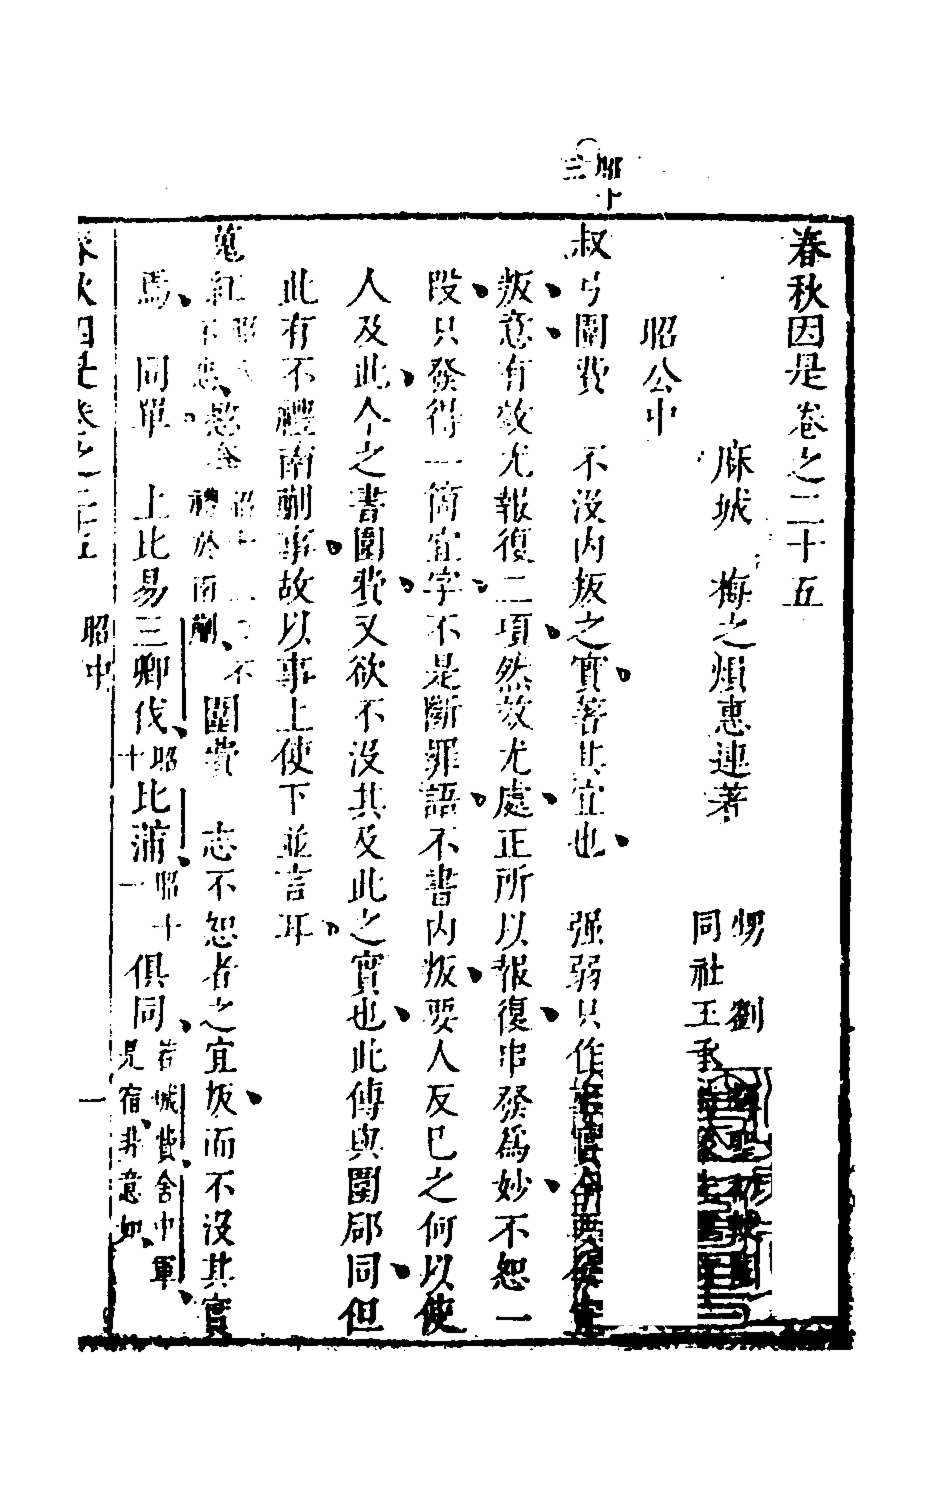 昭十三
春秋因是卷之二十五
麻城 梅之熉惠連著
甥 劉
同社王承
昭公中
叔弓圍費 不沒内叛之實著其宜也 强弱只作
叛意有效尤報復二項然效尤處正所以報復串發為妙不恕一
段只發得一箇宜字不是斷罪語不書内叛要人反已之何以使
人及此今之書圍費又欲不沒其及此之實也此傳與圍郈同但
此有不禮南蒯事故以事上使下並言耳
蒐紅 昭 不忠 憖 禮於南蒯 昭十二 不 圍費 志不恕者之宜叛而不沒其實
焉 同單 上比易三卿伐昭十比蒲昭十一俱同若城費舍中軍是宿非意如
春秋因是卷之二十五 昭中 一